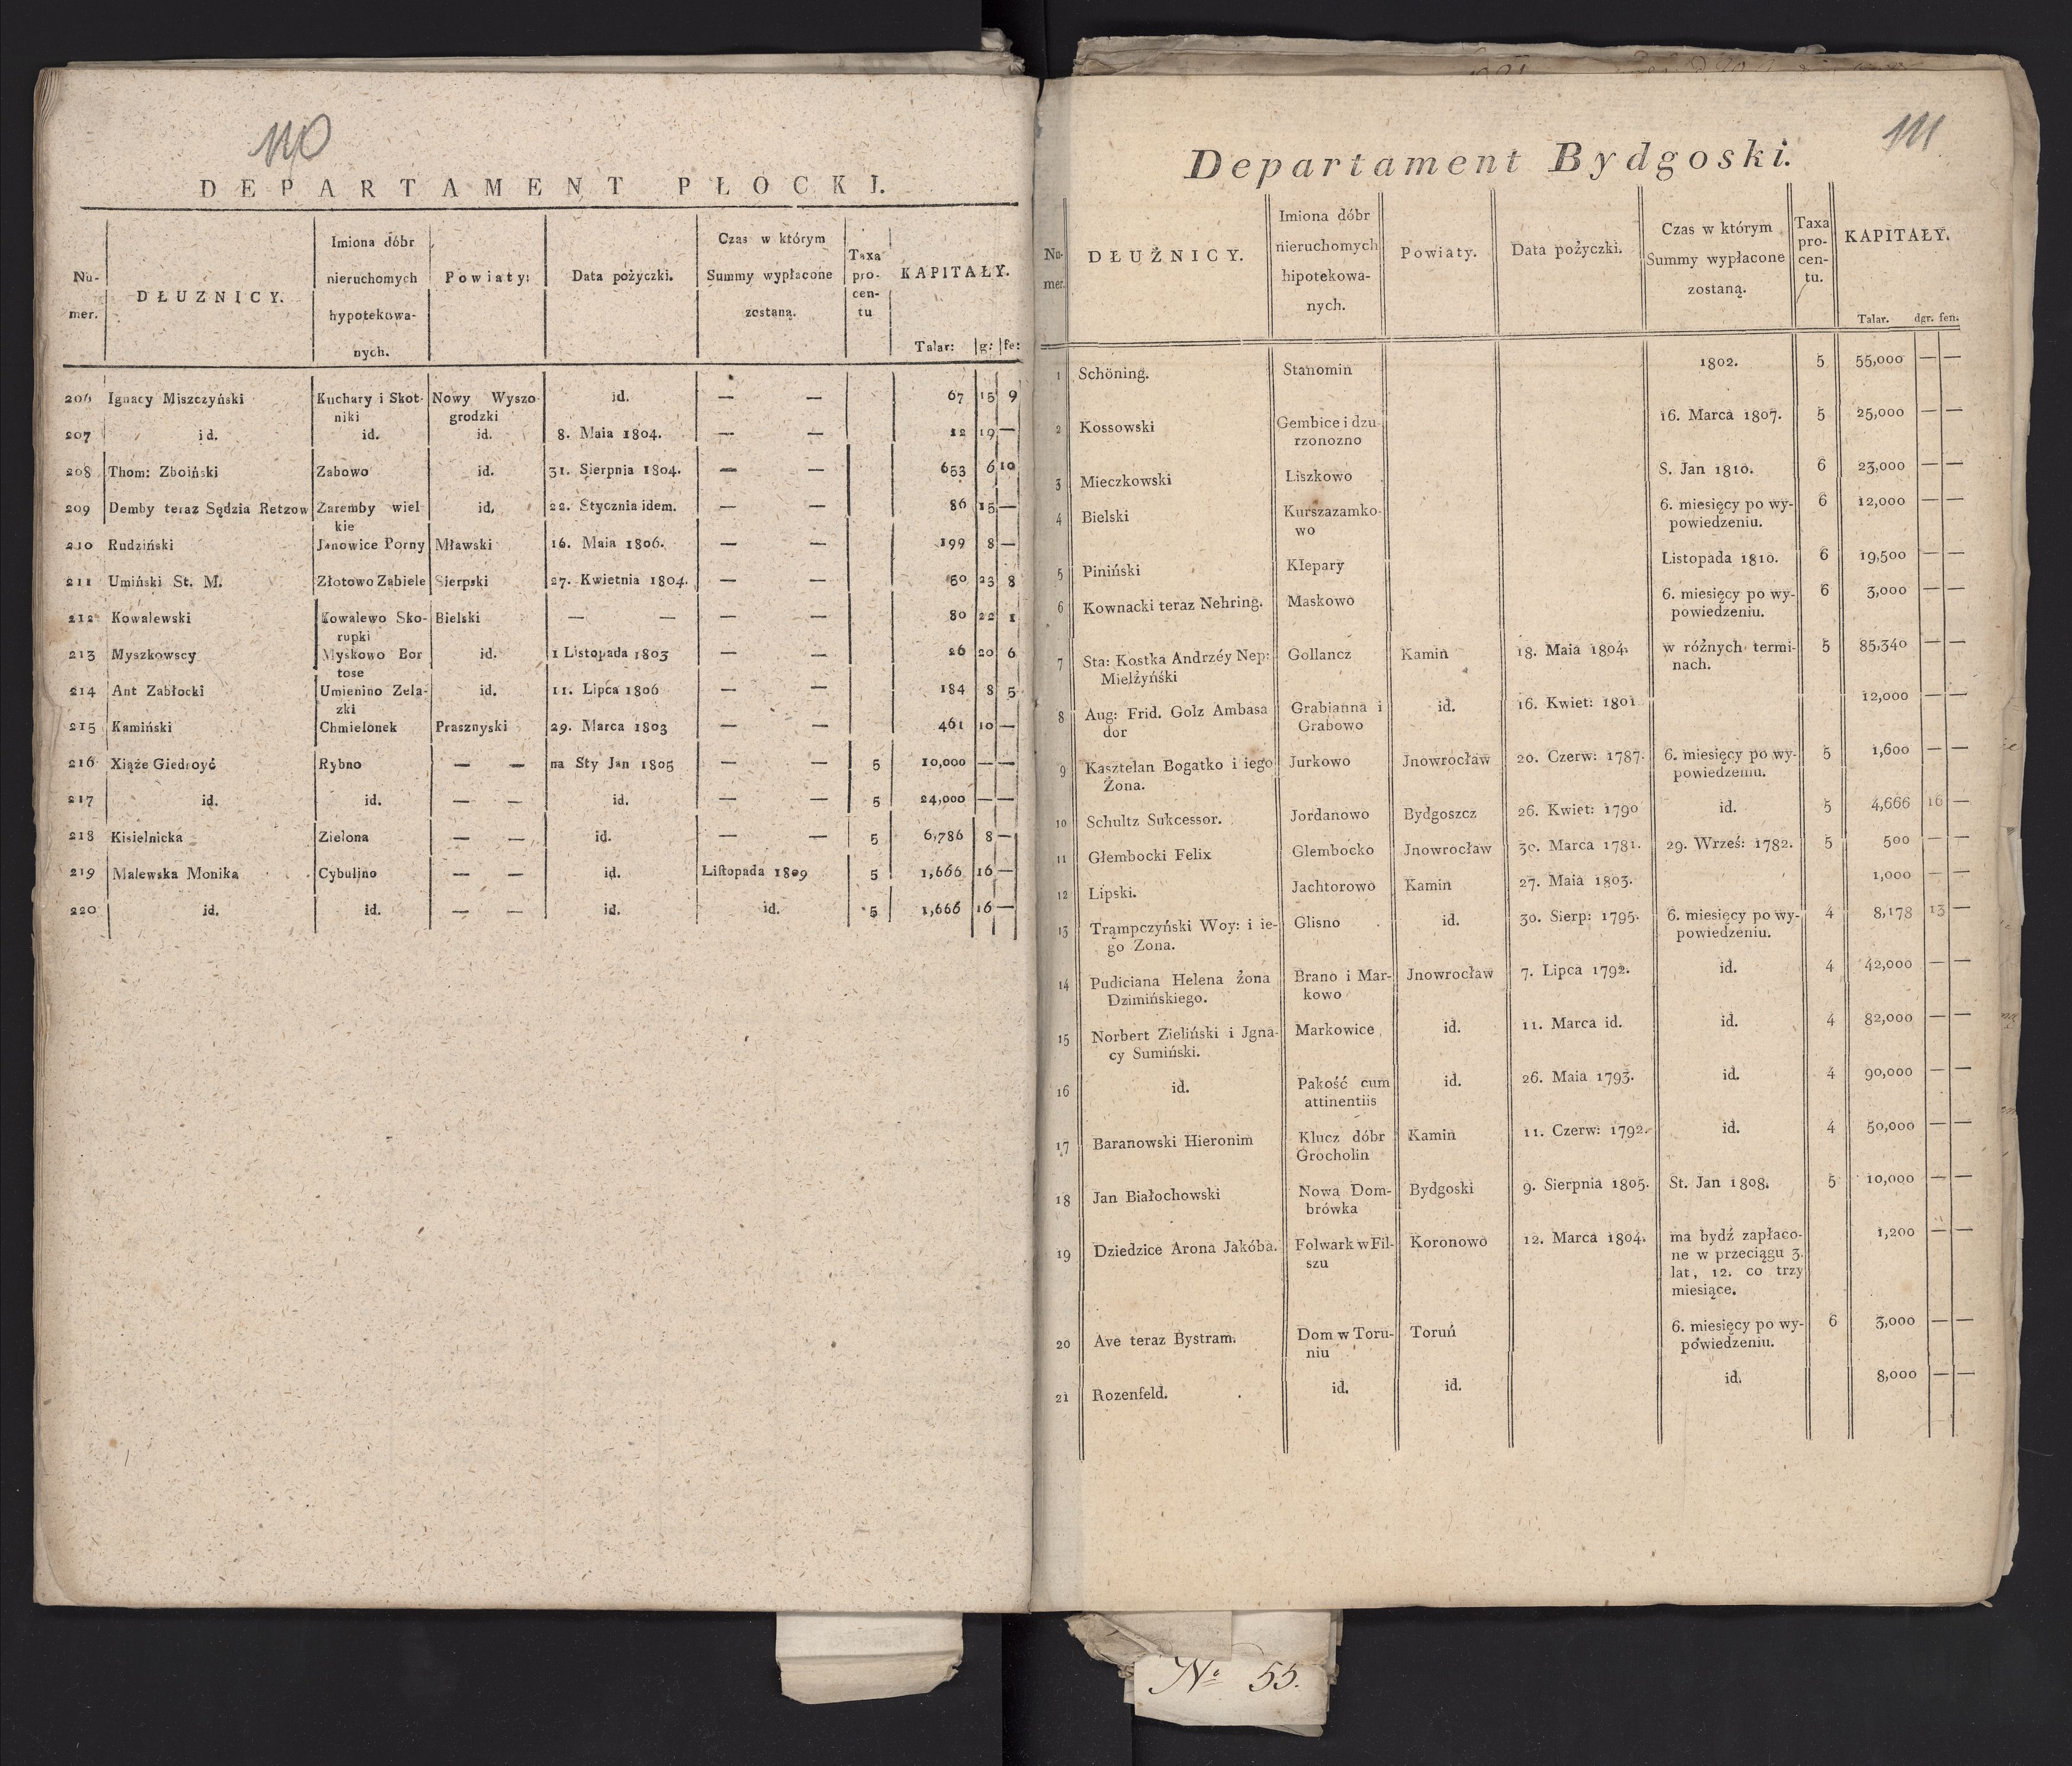 110
DEPARTAMENT PŁOCKI.
Nu-
mer.
DŁUZNICY.
Imiona dóbr
nieruchomych
hypotekowa-
nych.
Powiaty:
Data pożyczki.
Czas w którym
Summy wypłacone
zostaną.
Taxa
pro-
cen-
tu
KAPITAŁY.
Talar: g: fe:
206 Ignacy Miszczyński Kuchary i Skot- Nowy Wyszo id. — — 67 15 9
niki grodzki
207 id. id. id. 8. Maia 1804. — — 12 19 —
208 Thom: Zboiński Zabowo id. 31. Sierpnia 1804. — — 653 6 10
209 Demby teraz Sędzia Retzow Zaremby wiel- id. 22. Stycznia idem. — — 86 15 —
kie
210 Rudziński Janowice Porny Mławski 16. Maia 1806. — — 199 8 —
211 Umiński St. M. Złotowo Zabiele Sierpski 27. Kwietnia 1804. — — 50 23 8
212 Kowalewski Kowalewo Sko- Bielski — — — — 80 22 1
rupki
213 Myszkowscy Myskowo Bor id. 1 Listopada 1803 — — 26 20 6
tose
214 Ant Zabłocki Umienino Zela- id. 11. Lipca 1806 — — 184 8 5
zki
215 Kamiński Chmielonek Prasznyski 29. Marca 1803 — — 461 10 —
216 Xiąże Giedroyć Rybno — — na Sty Jan 1805 — — 5 10,000 — —
217 id. id. — — id. — — 5 24,000 — —
218 Kisielnicka Zielona — — id. — — 5 6,786 8 —
219 Malewska Monika Cybulino — — id. Listopada 1809 5 1,666 16 —
220 id. id. — — id. id. 5 1,666 16 —
111
Departament Bydgoski.
Nu-
mer.
DŁUŻNICY.
Imiona dóbr
nieruchomych
hipotekowa-
nych.
Powiaty.
Data pożyczki.
Czas w którym
Summy wypłacone
zostaną.
Taxa
pro-
cen-
tu.
KAPITAŁY.
Talar. dgr. fen.
1 Schöning. Stanomin 1802. 5 55,000 — —
2 Kossowski Gembice i dzu- 16. Marca 1807. 5 25,000 — —
rzonozno
3 Mieczkowski Liszkowo S. Jan 1810. 6 23,000 — —
4 Bielski Kurszazamko- 6. miesięcy po wy- 6 12,000 — —
wo powiedzeniu.
5 Piniński Klepary Listopada 1810. 6 19,500 — —
6 Kownacki teraz Nehring. Maskowo 6. miesięcy po wy- 6 3,000 — —
powiedzeniu.
7 Sta: Kostka Andrzéy Nep: Gollancz Kamin 18. Maia 1804. w różnych termi- 5 85,340 — —
Mielżyński nach.
8 Aug: Frid. Golz Ambasa Grabianna i id. 16. Kwiet: 1801 12,000 — —
dor Grabowo
9 Kasztelan Bogatko i iego Jurkowo Jnowrocław 20. Czerw: 1787. 6. miesięcy po wy- 5 1,600 — —
Żona. powiedzeniu.
10 Schultz Sukcessor. Jordanowo Bydgoszcz 26. Kwiet: 1790 id. 5 4,666 16 —
11 Głembocki Felix Glembocko Jnowrocław 30. Marca 1781. 29. Wrześ: 1782. 5 500 — —
12 Lipski. Jachtorowo Kamin 27. Maia 1803. 1,000 — —
13 Trąmpczyński Woy: i ie- Glisno id. 30. Sierp: 1795. 6. miesięcy po wy- 4 8,178 13 —
go Zona. powiedzeniu.
14 Pudiciana Helena żona Brano i Mar- Jnowrocław 7. Lipca 1792. id. 4 42,000 — —
Dzimińskiego. kowo
15 Norbert Zieliński i Jgna- Markowice id. 11. Marca id. id. 4 82,000 — —
cy Sumiński.
16 id. Pakość cum id. 26. Maia 1793. id. 4 90,000 — —
attinentiis
17 Baranowski Hieronim Klucz dóbr Kamin 11. Czerw: 1792. id. 4 50,000 — —
Grocholin
18 Jan Białochowski Nowa Dom- Bydgoski 9. Sierpnia 1805. St. Jan 1808. 5 10,000 — —
brówka
19 Dziedzice Arona Jakóba. Folwark w Fil- Koronowo 12. Marca 1804. ma bydź zapłaco- 1,200 — —
szu ne w przeciągu 3.
lat, 12. co trzy
miesiące.
20 Ave teraz Bystram. Dom w Toru- Toruń 6. miesięcy po wy- 6 3,000 — —
niu powiedzeniu.
21 Rozenfeld. id. id. id. 8,000 — —
No 55.